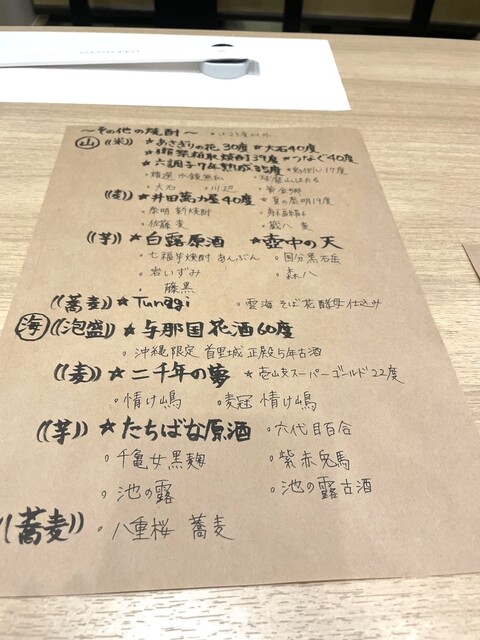 〜その他の焼酎〜
山 ((米)) ★あさぎりの花 30度 ★大石40度
★獺祭粕取焼酎39度 ★つなぐ40度
★六調子7年熟成35度
・大石 ・川辺
((麦)) ★井田萬力屋40度
・佐藤 麦
((芋)) ★白露原酒 ★壺中の天
・七福芋焼酎 あんぶん ・国分黒石岳
・岩いずみ ・森八
・藤黒
((蕎麦)) ★Tunagi ・雲海 そば花酵母仕込み
海 ((泡盛)) ★与那国花酒60度
・沖縄限定 首里城正殿5年古酒
((麦)) ★二千年の夢 ★壱岐スーパーゴールド22度
・情け嶋 ・麦冠 情け嶋
((芋)) ★たちばな原酒 ・六代目百合
・千亀女黒麹 ・紫赤兎馬
・池の露 ・池の露古酒
((蕎麦)) ・八重桜 蕎麦